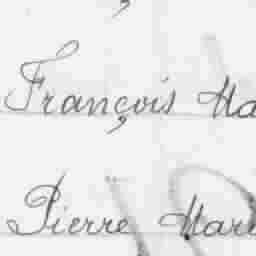 François Ma
Pierre Mar